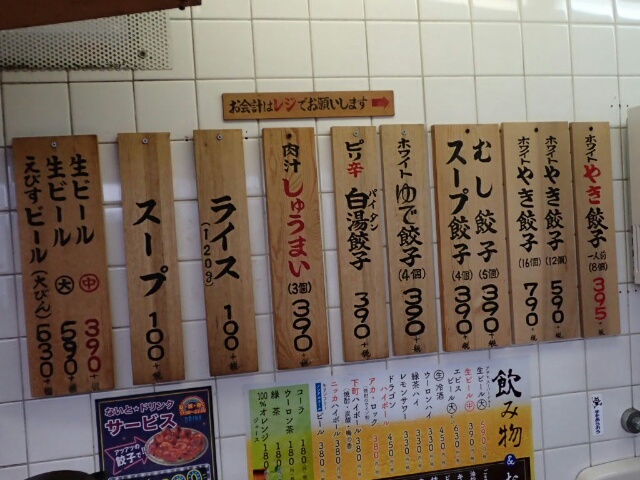 お会計はレジでお願いします
ホワイト やき餃子 一人前 (8個) 395
ホワイト やき餃子 (12個) 590+税
ホワイト やき餃子 (16個) 790+税
むし餃子 (5個) 390+税
スープ餃子 (4個) 390+税
ホワイト ゆで餃子 (4個) 390+税
ピリ辛 白湯餃子 390+税
パイタン
肉汁しゅうまい (3個) 390+税
ライス (120g) 100+税
スープ 100+税
生ビール (中) 390+税
生ビール (大) 590+税
えびすビール (大びん) 630+税
飲み物
生ビール(大)
生ビール(中) 390
エビスビール(大) 630
生冷酒 450
ウーロンハイ 330
緑茶ハイ 330
レモンサワー 330
コーラ 180
ウーロン茶 180
緑茶 180
100%オレンジジュース 180
ないと★ドリンク
サービス
アツアツの餃子で!!